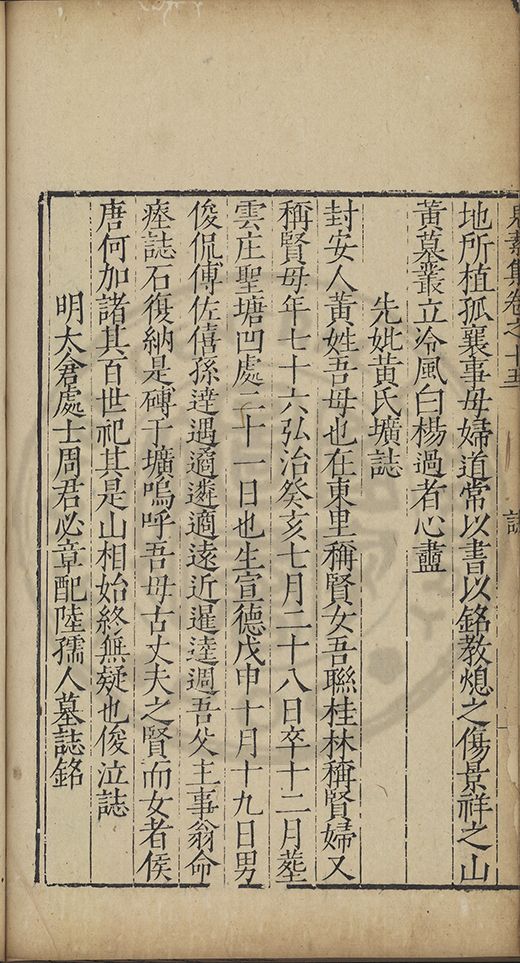 集卷之十五
地所植孤襄事母婦道常以書以銘教熄之傷景祥之山
黃墓叢立冷風白楊過者心盡
先妣黃氏壙誌
封安人黃姓吾母也在東里稱賢女吾聯桂林稱賢婦又
稱賢母年七十六弘治癸亥七月二十八日卒十二月塟
雲庄聖塘凹處二十一日也生宣德戊申十月十九日男
俊侃傅佐僖孫達遇遹遴適遠近暹達週吾父主事翁命
瘞誌石復納是磚于壙嗚呼吾母古丈夫之賢而女者侯
唐何加諸其百世祀其是山相始終無疑也俊泣誌
明太倉處士周君必章配陸孺人墓誌銘